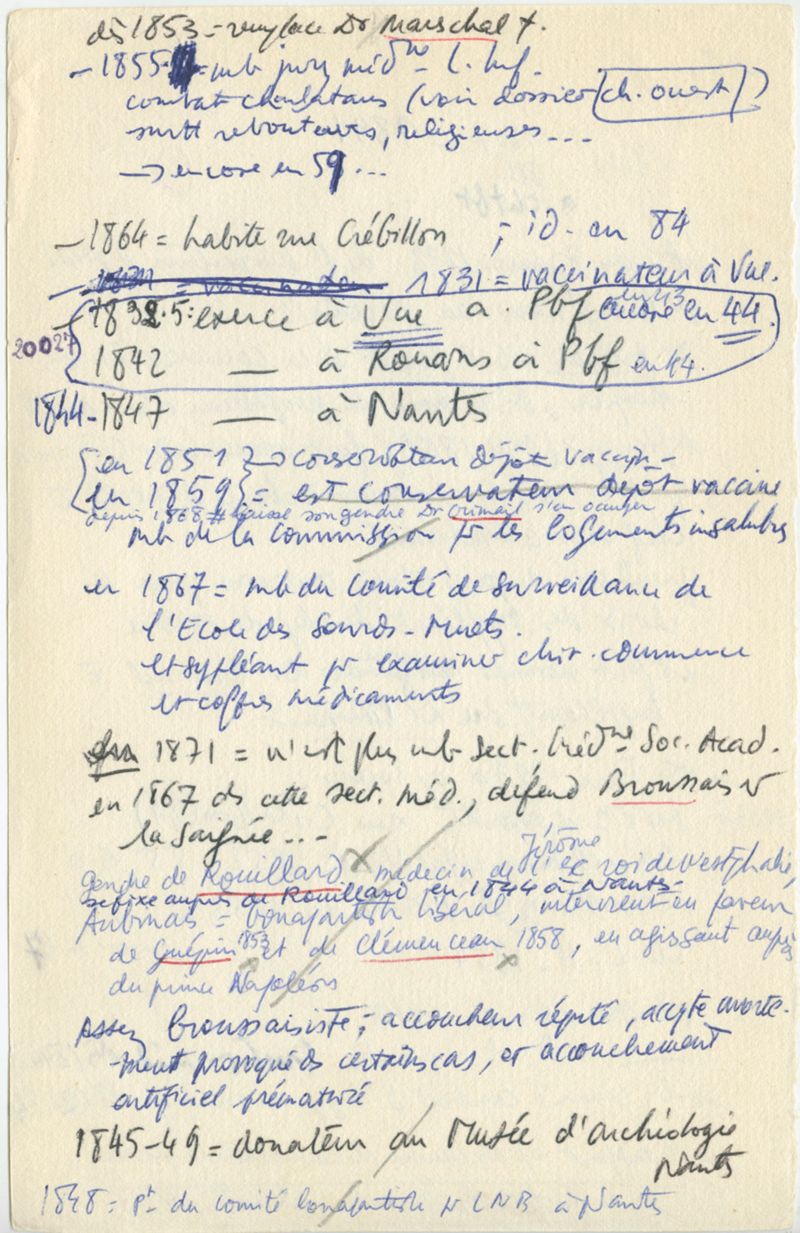 dès 1853 = remplace Dr Marschal +.
- 1855 = mb jury médne L. Inf.
combat charlatans (voir dossier ch. ouest)
surtt rebouteurs, religieuses...
→ encore en 59...
- 1864 = habite rue Crébillon ; id. en 84
1831 = vaccinateur à Vue.
- 1832.5 : exerce à Vue a. Pbf encore en 44.
en 43
20027
1842 — à Rouans à Pbf en 44.
1844-1847 — à Nantes
en 1851 → conservateur dépôt vaccin -
en 1859 = est conservateur dépôt vaccine
depuis 1868 laisse son gendre Dr Crimail s'en occuper
mb de la Commission pr les logements insalubres
en 1867 = mb du Comité de surveillance de
l'Ecole des Sourds-Muets.
et suppléant pr examiner chir. commerce
et coffres médicaments
1871 = n'est plus mb Sect. Médne Soc. Acad.
en 1867 ds cette sect. méd., défend Broussais
la Saignée...
gendre de Rouillard médecin de l'ex roi de Westphalie,
Jérôme
se fixe auprès de Rouillard en 1844 à Nantes -
Aubinais = bonapartiste libéral, intervient en faveur
de Guépin 1853 et de Clémenceau 1858, en agissant auprès
du prince Napoléon
Assez broussaisiste ; accoucheur réputé, accepte avorte-
ment provoqué ds certains cas, et accouchement
artificiel prématuré
1845-49 = donateur au Musée d'archéologie
Nantes
1848 = Pt du comité bonapartiste pr LNB à Nantes